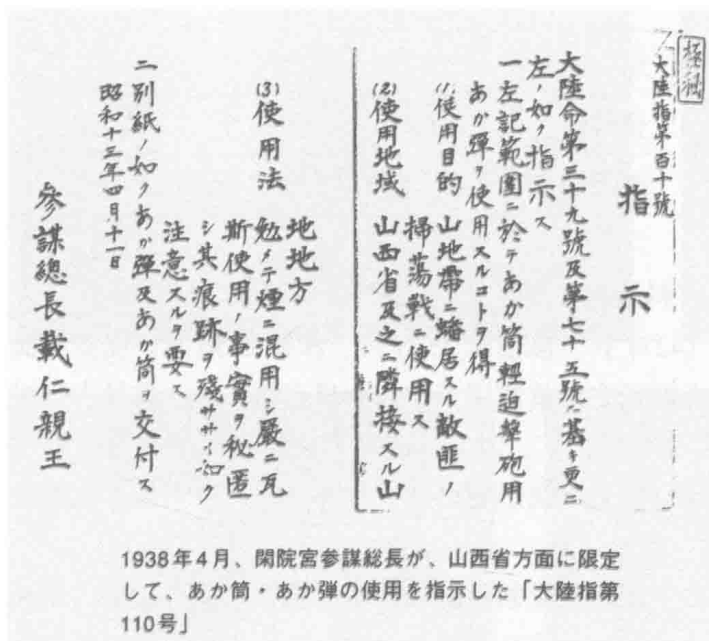 極秘
大陸指第百十號
指示
大陸命第三十九號及第七十五號ニ基キ更ニ
左ノ如ク指示ス
一左記範圍ニ於テあか筒輕迫擊砲用
あか彈ヲ使用スルコトヲ得
(1)使用目的 山地帶ニ蟠居スル敵匪ノ
掃蕩戰ニ使用ス
(2)使用地域 山西省及之ニ隣接スル山
地地方
(3)使用法 勉メテ煙ニ混用シ嚴ニ瓦
斯使用ノ事實ヲ秘匿
シ其痕跡ヲ殘ササル如ク
注意スルヲ要ス
二別紙ノ如クあか彈及あか筒ヲ交付ス
昭和十三年四月十一日
參謀總長載仁親王
1938年4月、閑院宮参謀総長が、山西省方面に限定
して、あか筒・あか弾の使用を指示した「大陸指第
110号」